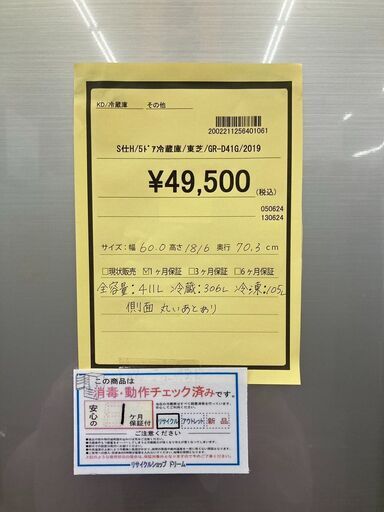 KD/冷蔵庫 その他
2002211256401061
S仕H/5ﾄﾞｱ冷蔵庫/東芝/GR-D41G/2019
¥49,500(税込)
050624
130624
サイズ:幅 60.0 高さ 181.6 奥行 70.3 cm
□現状販売 ☑1ヶ月保証 □3ヶ月保証 □6ヶ月保証
全容量:411L 冷蔵:306L 冷凍:105L
側面 丸いあとあり
この商品は
消毒・動作チェック済みです。
安心の 1 ヶ月保証付
リサイクル アウトレット 新品
ご注意ください
リサイクルショップ ドリーム